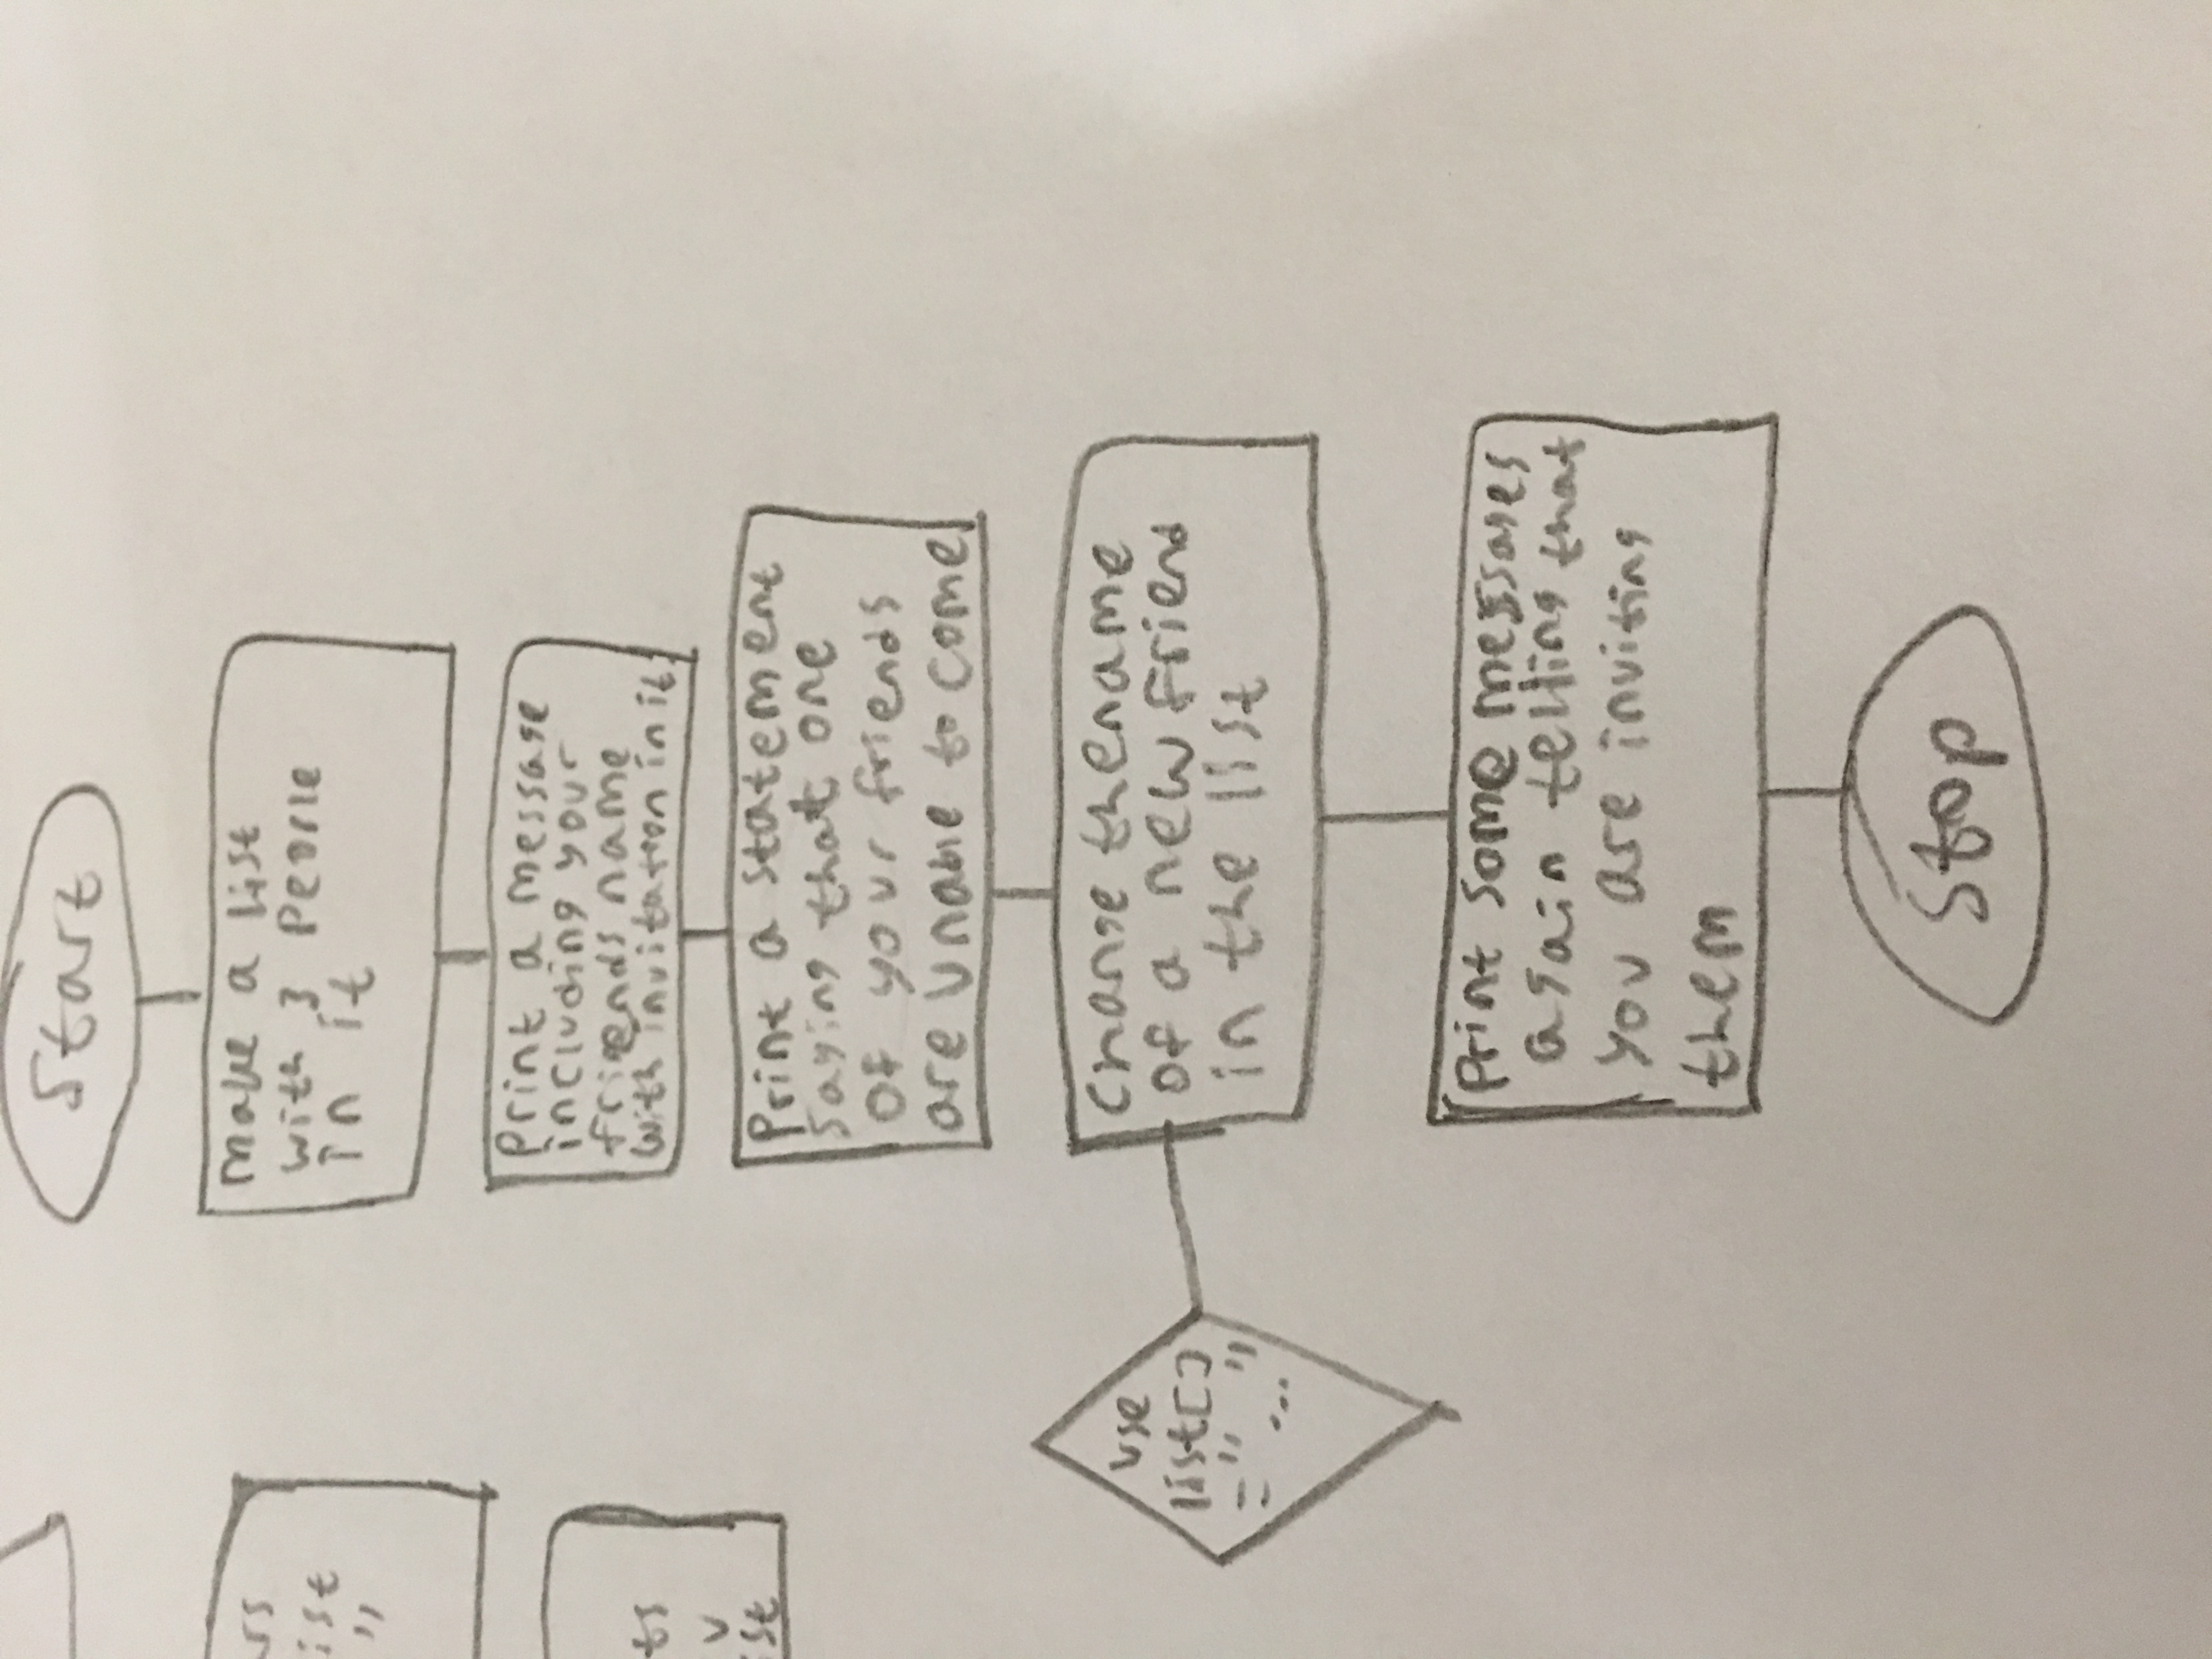 Start
make a list
with 3 People
in it
Print a message
including your
friends name
with invitation in it.
Print a statement
saying that one
of your friends
are unable to come
change the name
of a new friend
in the list
use
list[]
="..."
Print some messages
again telling that
you are inviting
them
Stop
rs
ist
"
ts
v
ist